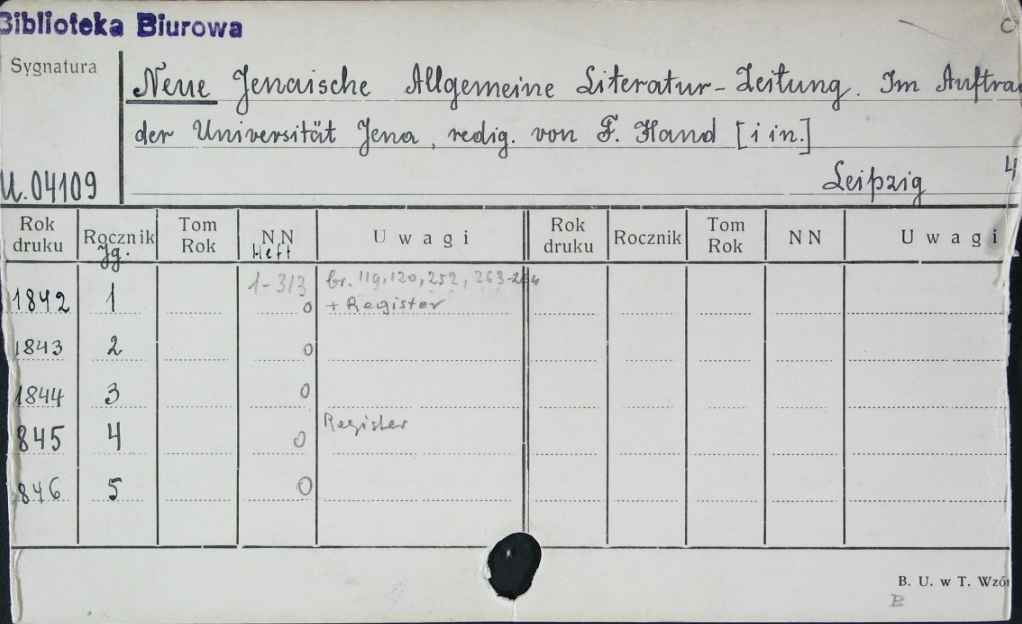 Biblioteka Biurowa
C
Sygnatura
Neue Jenaische Allgemeine Literatur-Zeitung. Im Auftra
der Universität Jena, redig. von F. Hand [i in.]
U.04109
Leipzig 4
Rok druku Rocznik Jg. Tom Rok NN Heft Uwagi Rok druku Rocznik Tom Rok NN Uwagi
1842 1 1-313 0 br. 119, 120, 252, 263-264
+ Register
1843 2 0
1844 3 0
845 4 0 Register
846 5 0
B. U. w T. Wzór
B